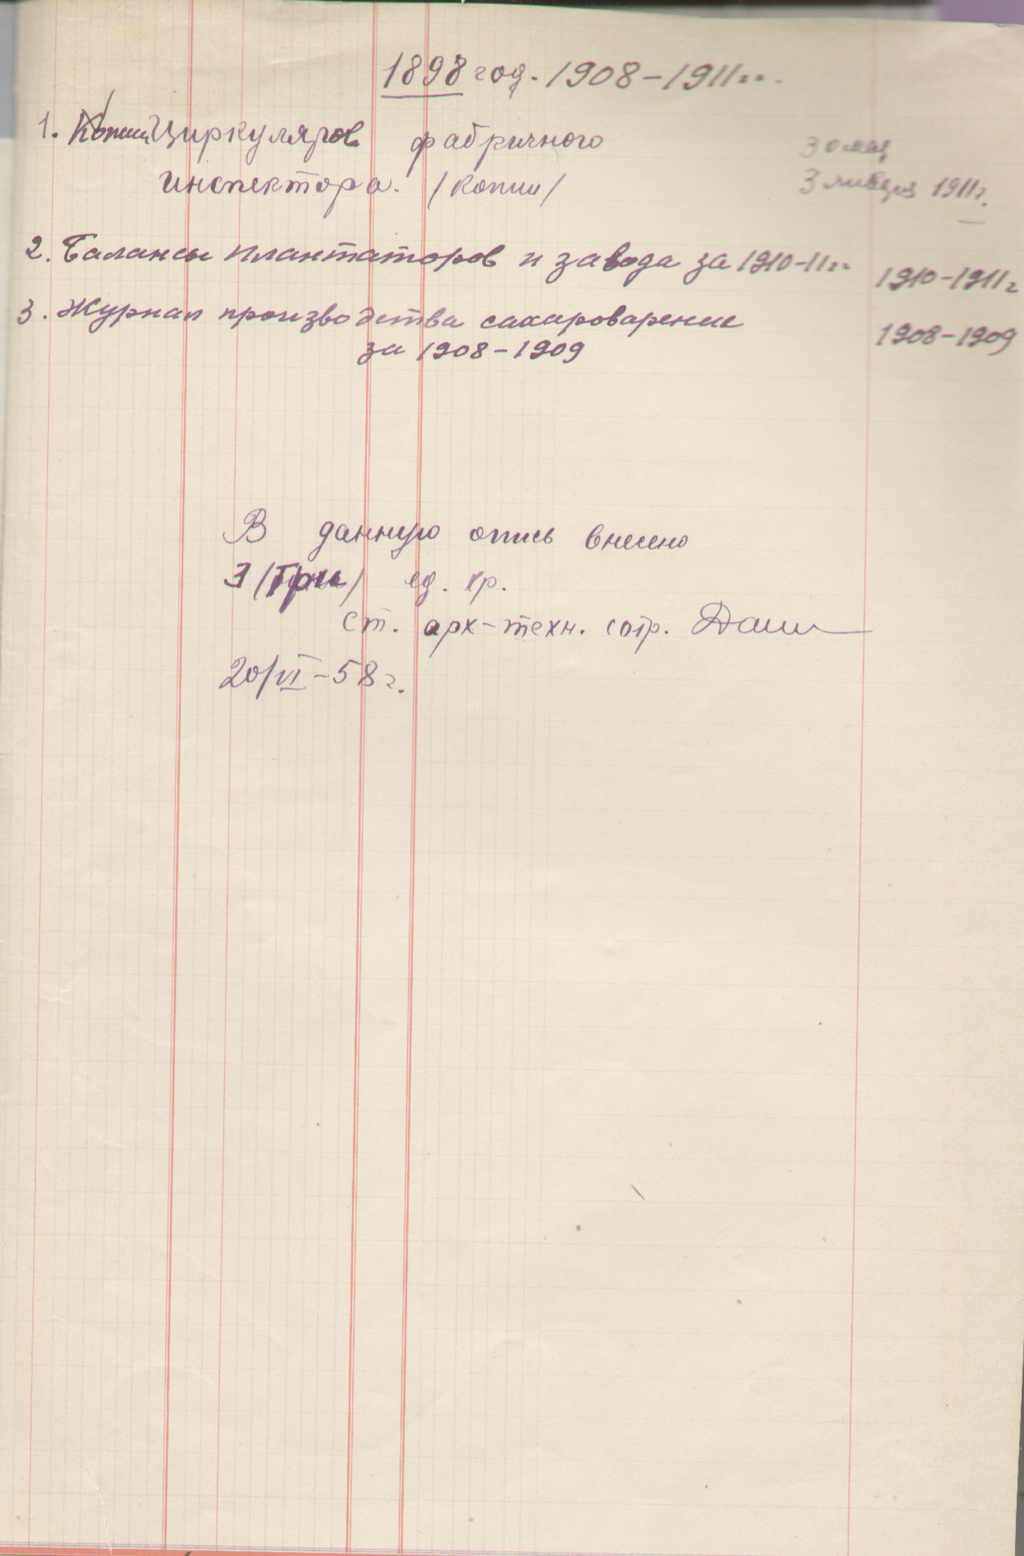 1898 год. 1908-1911гг.
1. Копии Циркуляров фабричного
инспектора. /копии/
3 января 1911г.
2. Балансы плантаторов и завода за 1910-11гг
1910-1911г
3. Журнал производства сахароварение
за 1908-1909
1908-1909
В данную опись внесено
3 /три/ ед. хр.
ст. арх-техн. сотр.
20/VI-58г.